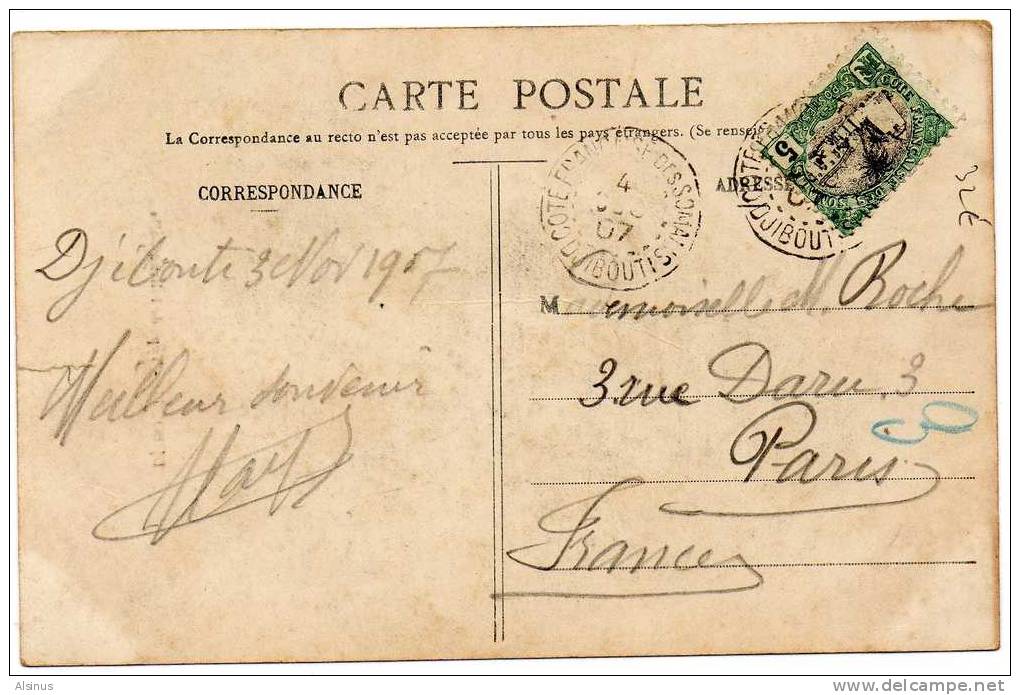 CARTE POSTALE
La Correspondance au recto n'est pas acceptée par tous les pays étrangers. (Se rensei
CORRESPONDANCE
ADRESSE
COTE FRANÇAISE DES SOMALIS
4
07
DJIBOUTI
DJIBOUTI
5
CÔTE FRANÇAISE DES SOMALIS
32€
Djibouti 3 Nov 1907
Meilleur souvenir
Mademoiselle M. Roche
3 rue Daru 3
Paris
France
Alsinus
www.delcampe.net